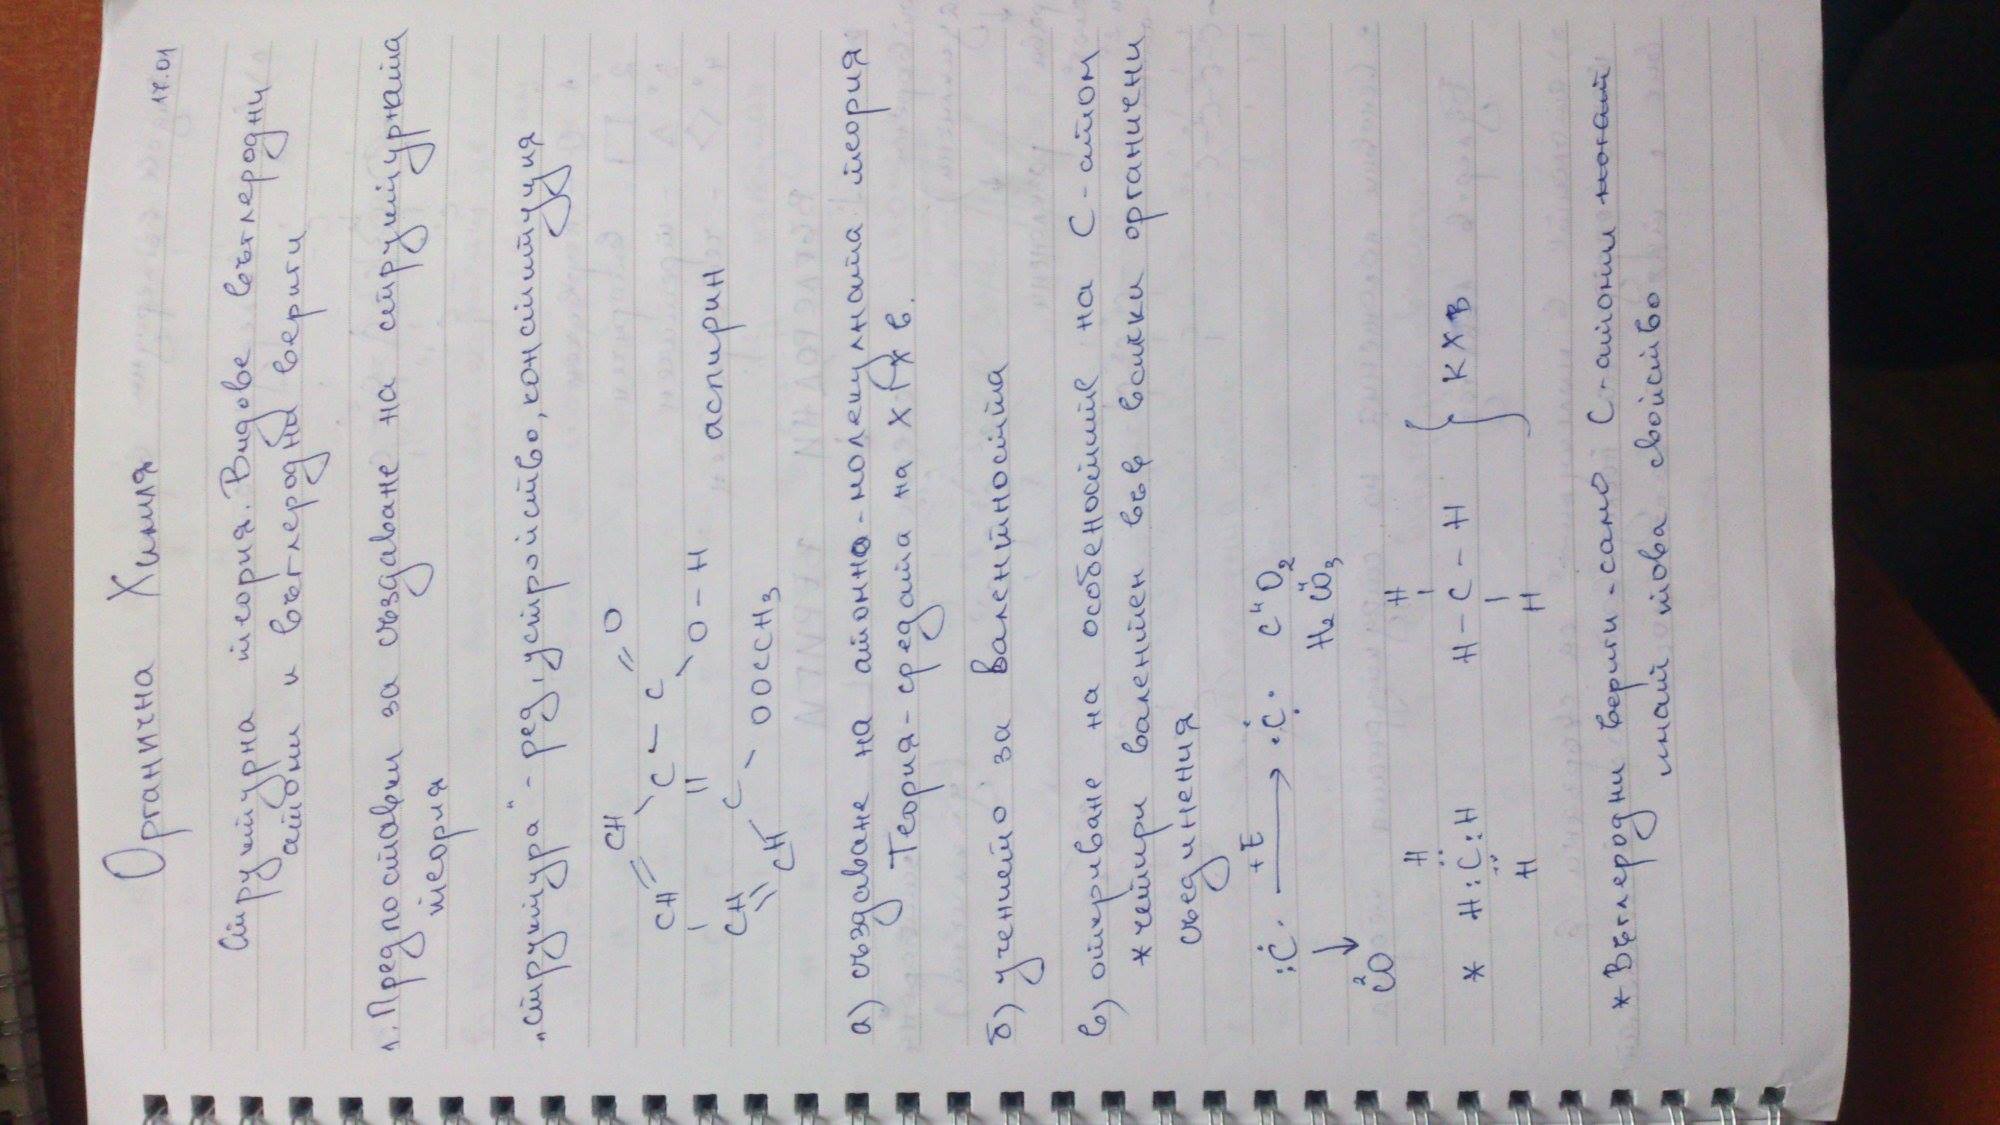 17.01
Органична Химия
Структурна теория. Видове въглеродни
атоми и въглеродна вериги
1. Предпоставки за създаване на структурната
теория
"структура" - ред, устройство, конституция
CH O
CH C - C
O - H аспирин
CH C
CH OOCCH3
а) създаване на атомно-молекулната теория
Теория - средата на XIX в.
б) учението за валентността
в) откриване на особеностите на C - атом
* четири валентен във всики органични
съединения
:Ċ· +E → ·Ċ· C⁴O2
²CO H2CO3
H H
* H:C:H H - C - H } КХВ
H H
* Въглеродни вериги - само C - атоми могат
имат това свойство